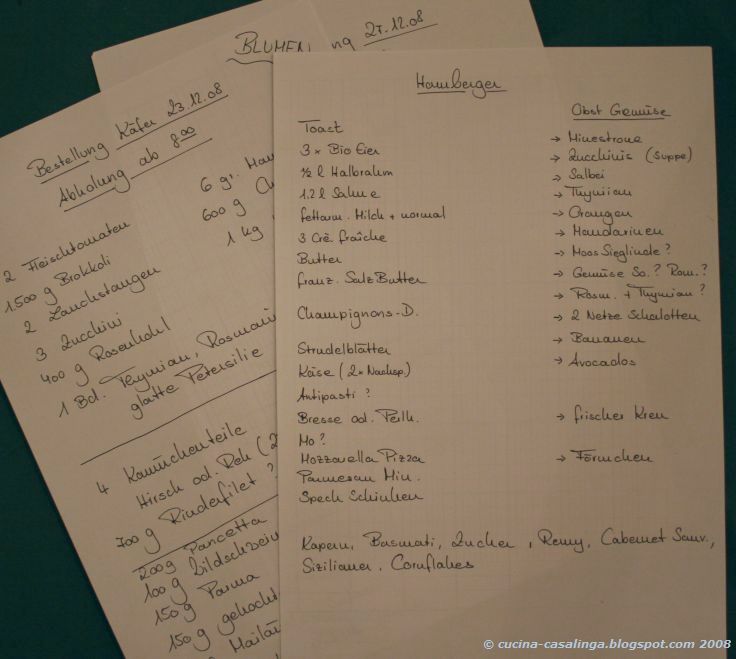 BLUMEN
ng 27.12.08
Bestellung Käfer 23.12.08
Abholung ab 8.00
6 gr.
600 g
1 kg
2 Fleischtomaten
1.500 g Brokkoli
2 Lauchstangen
3 Zucchini
400 g Rosenkohl
1 Bd. Thymian, Rosmarin
glatte Petersilie
4 Kaninchenteile
Hirsch od. Reh (2
700 g Rinderfilet ?
200g Pancetta
100 g Wildschwein
150 g Parma
150 g gekocht
Hamberger
Toast
3 x Bio Eier
½ l Halbrahm
1.2 l Sahne
fettarm. Milch + normal
3 Crè. fraîche
Butter
franz. Salz Butter
Champignons-D.
Strudelblätter
Käse (2x Nachsp.)
Antipasti ?
Bresse od. Perlh.
Mo ?
Mozzarella Pizza
Parmesan Min.
Speck Schinken
Obst Gemüse
→ Minestrone
→ Zucchinis (Suppe)
→ Salbei
→ Thymian
→ Orangen
→ Mandarinen
→ Moos Sieglinde ?
→ Gemüse So. ? Rom. ?
→ Rosm. + Thymian ?
→ 2 Netze Schalotten
→ Bananen
→ Avocados
→ frischer Kren
→ Förmchen
Kapern, Basmati, Zucker, Remy, Cabernet Sauv.,
Sizilianer. Cornflakes
© cucina-casalinga.blogspot.com 2008